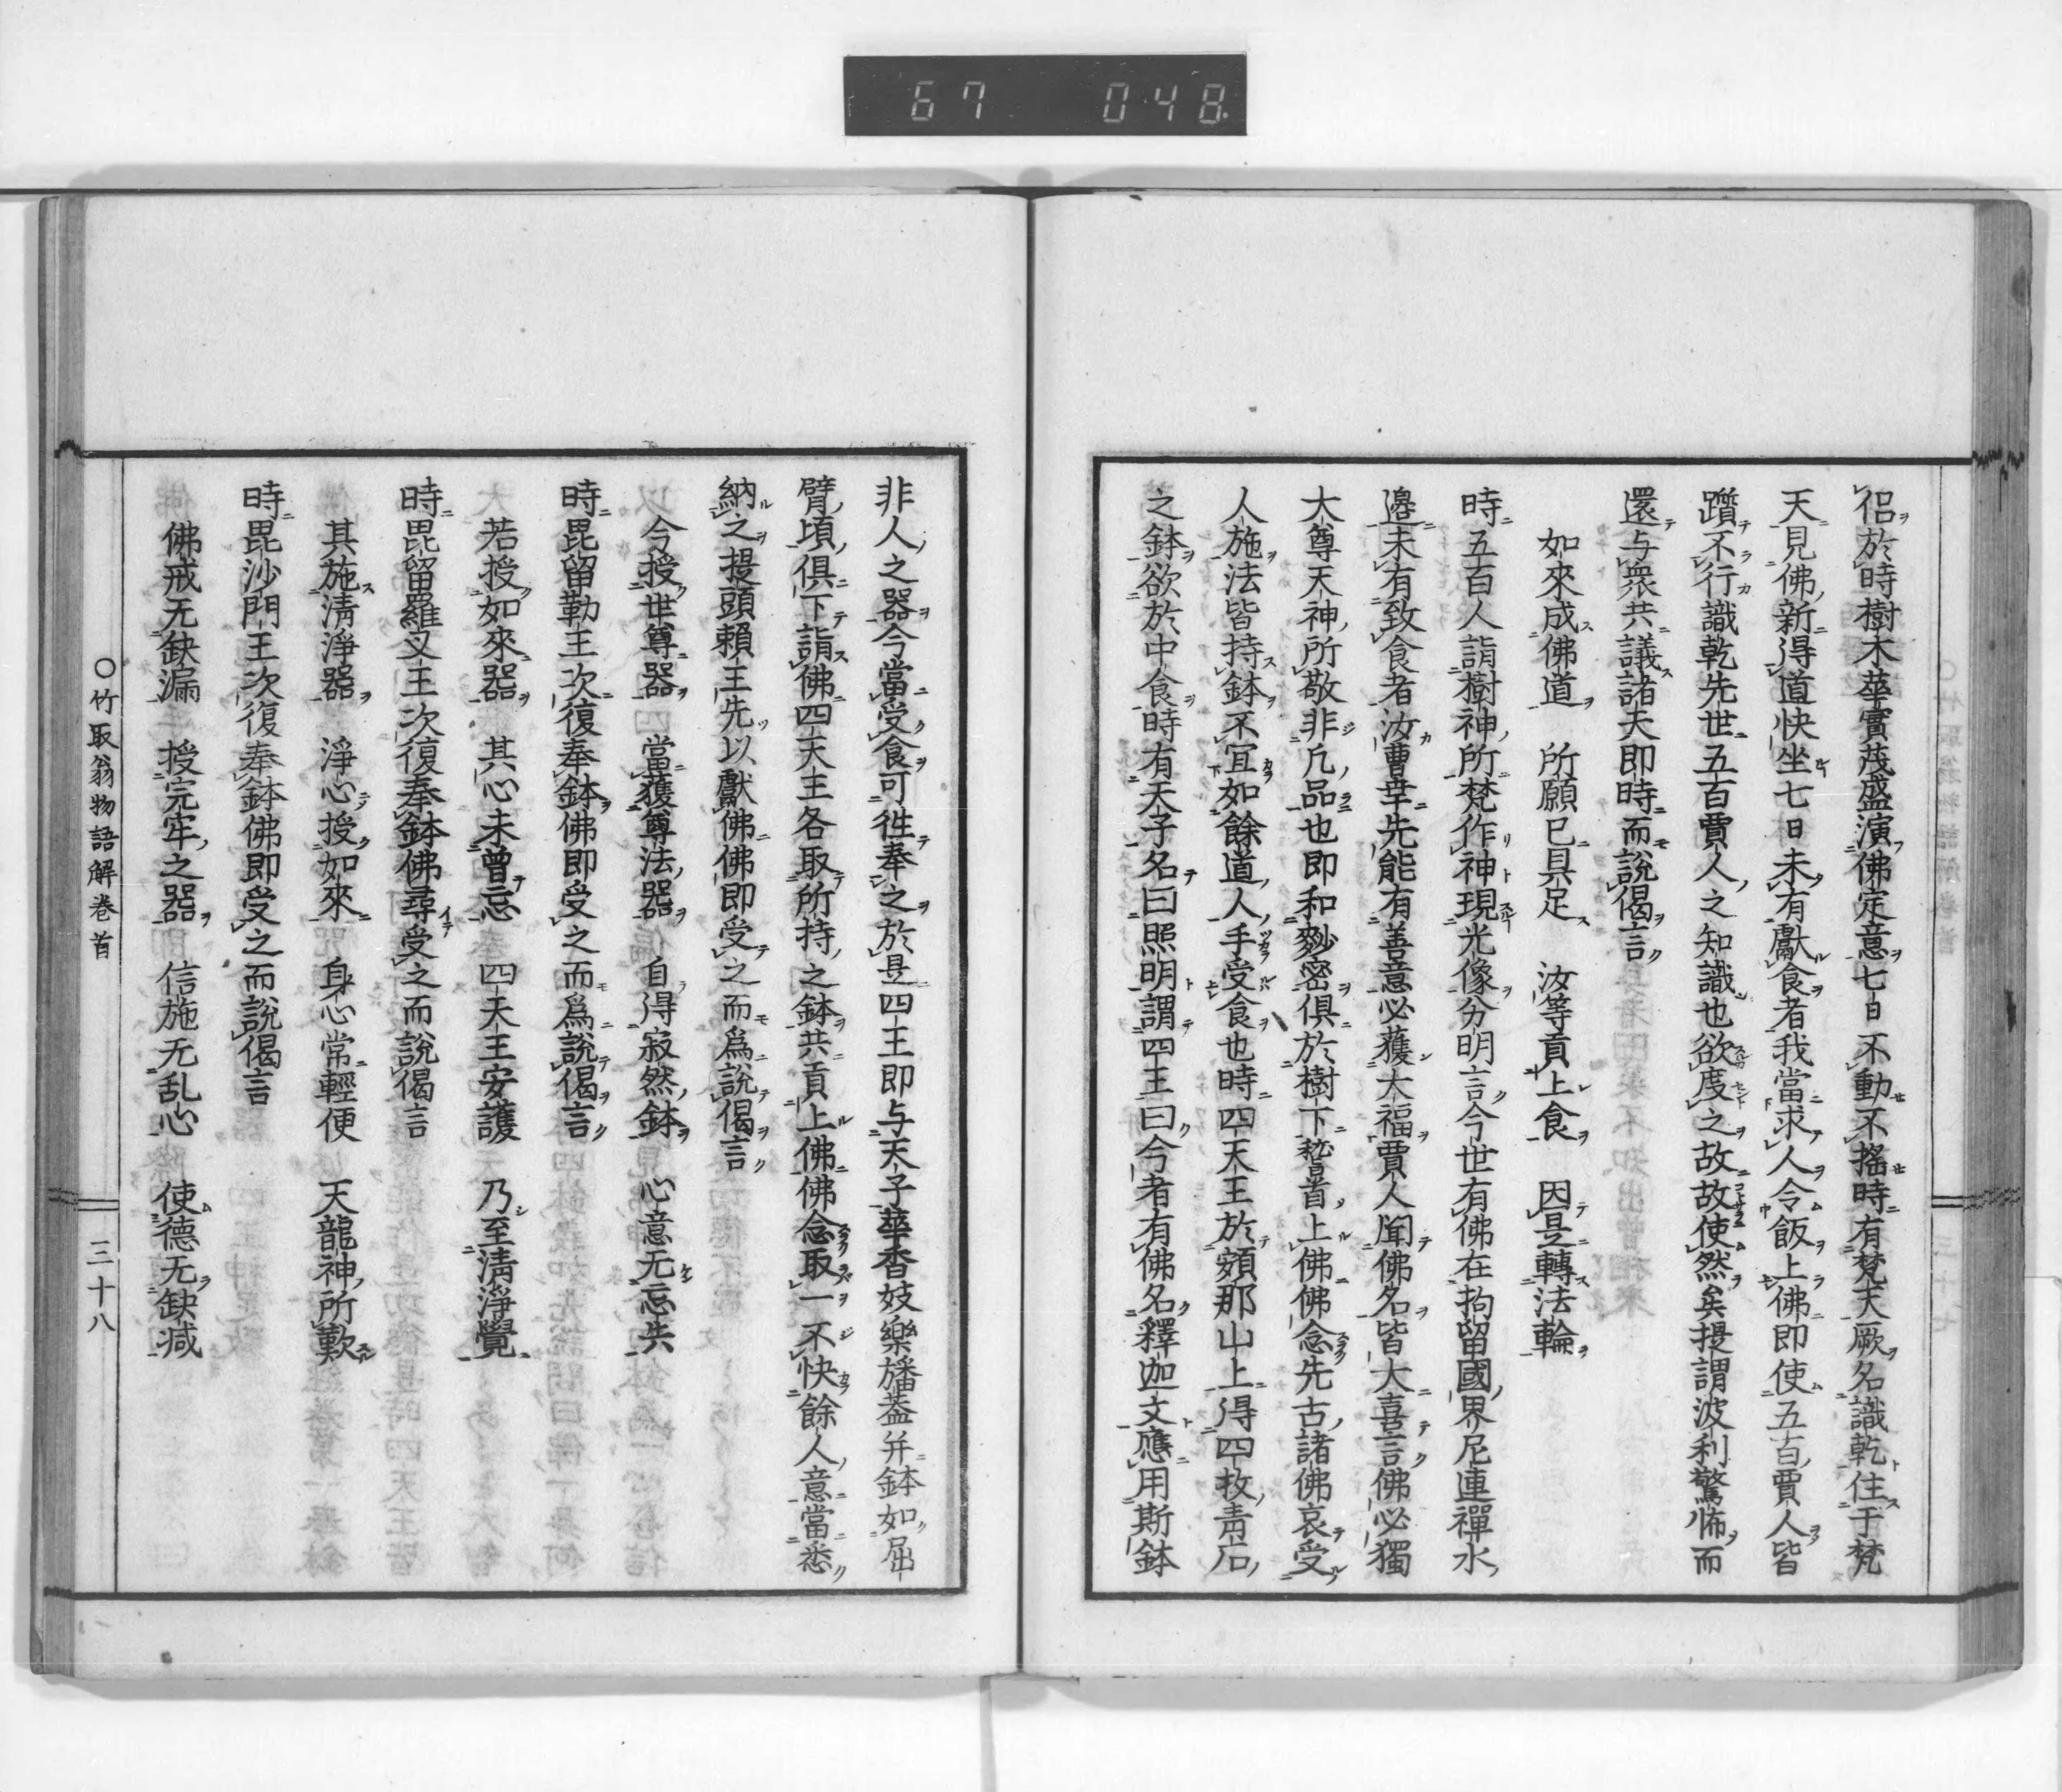 67 048
侶於時樹木華實茂盛演佛定意七日不動不搖時有梵天厥名識乾住于梵
天見佛新得道快坐七日未有獻食者我當求人令飯上佛即使五百賈人皆
躓不行識乾先世五百賈人之知識也欲度之故故使然矣提謂波利驚怖而
還与衆共議諸天即時而說偈言
如來成佛道 所願已具足 汝等貢上食 因是轉法輪
時五百人詣樹神所梵作神現光像分明言今世有佛在拘留國界尼連禪水
邊未有致食者汝曹幸先能有善意必獲大福賈人聞佛名皆大喜言佛必獨
大尊天神所敬非凡品也即和麨密俱於樹下稽首上佛佛念先古諸佛哀受
人施法皆持鉢不宜如餘道人手受食也時四天王於頞那山上得四枚靑石
之鉢欲於中食時有天子名曰照明謂四王曰今者有佛名釋迦文應用斯鉢
非人之器今當受食可往奉之於是四王即与天子華香妓樂旛蓋并鉢如屈
臂頃俱下詣佛四天王各取所持之鉢共貢上佛佛念取一不快餘人意當悉
納之提頭賴王先以獻佛佛即受之而爲說偈言
今授世尊器 當獲尊法器 自得寂然鉢 心意无忘失
時毘留勒王次復奉鉢佛即受之而爲說偈言
若授如來器 其心未曾忘 四天王安護 乃至淸淨覺
時毘留羅叉王次復奉鉢佛尋受之而說偈言
其施淸淨器 淨心授如來 身心常輕便 天龍神所歎
時毘沙門王次復奉鉢佛即受之而說偈言
佛戒无缺漏 授完牢之器 信施无乱心 使德无缺减
○竹取翁物語解卷首 三十八